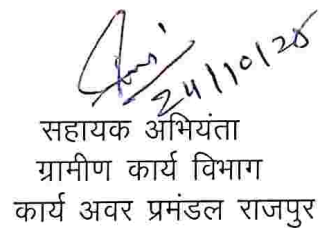 24/10/25
सहायक अभियंता
ग्रामीण कार्य विभाग
कार्य अवर प्रमंडल राजपुर